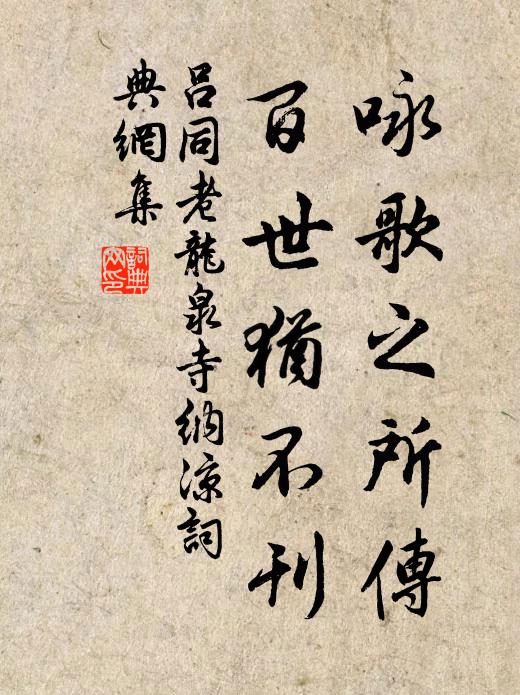 咏歌之所傳
百世猶不刊
吕同老龍泉寺納涼詞
典網集
詞典網印